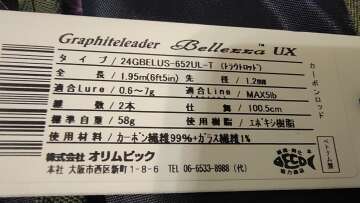 Graphiteleader Bellezza™ UX
タイプ / 24GBELUS-652UL-T (トラウトロッド)
全長 / 1.95m(6ft5in) 先径 / 1.2mm
適合Lure / 0.6~7g 適合Line / MAX5lb
継数 / 2本 仕舞 / 100.5cm
標準自重 / 58g 使用樹脂 / エポキシ樹脂
使用材料 / カーボン繊維99%+ガラス繊維1%
株式会社 オリムピック TEL 06-6533-8988 (代)
本社 大阪市西区新町1-8-6
カーボンロッド
ベトナム製